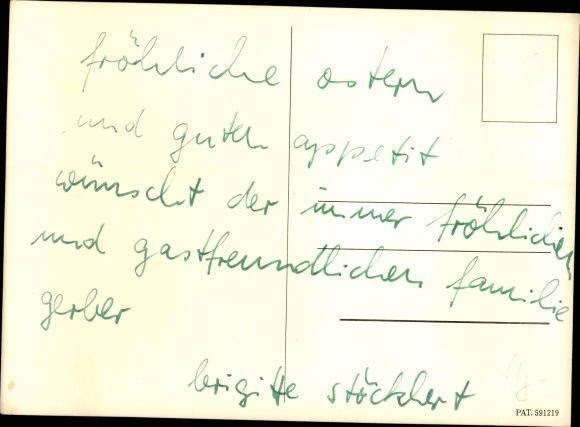 fröhliche ostern
und guten appetit
wünscht der immer fröhlichen
und gastfreundlichen familie
gerber
brigitte stöckhert
PAT. 591219